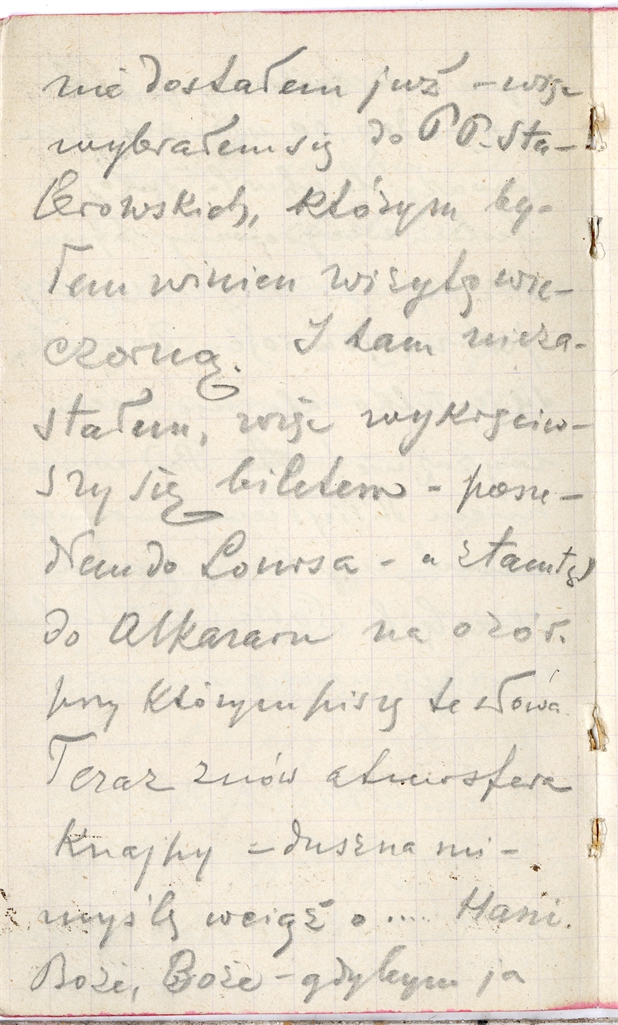 nie dostałem już – więc
wybrałem się do P P. Sta-
berowskich, którym by-
łem winien wizytę wie-
czorną. I tam nieza-
stałem, więc wykręciw-
szy się biletem – posze-
dłem do Lowrsa – a ztamtąd
do Alkazaru na
przy którym piszę te słowa
Teraz znów atmosfera
Knajpy – duszna mi –
myślę wciąż o .... Hani.
Boże, Boże – gdybym ja